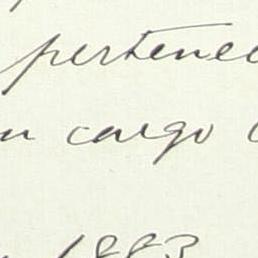 pertenec
cargo
1883